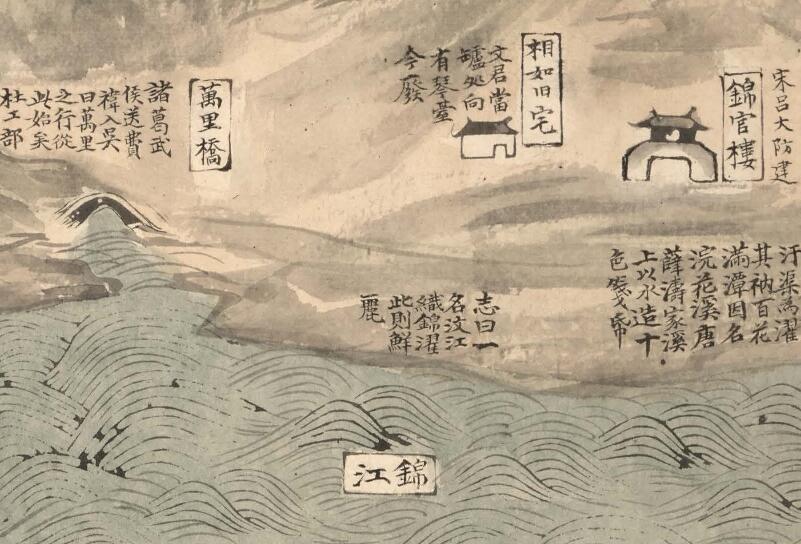 宋呂大防建
錦官樓
相如旧宅
文君當
罏処向
有琴臺
今廢
萬里橋
諸葛武
侯送費
禕入吳
曰萬里
之行從
此始矣
杜工部
汙渠為濯
其衲百花
滿潭因名
浣花溪唐
薛濤家溪
上以水造十
色箋帋
志曰一
名汶江
織錦濯
此則鮮
麗
錦江